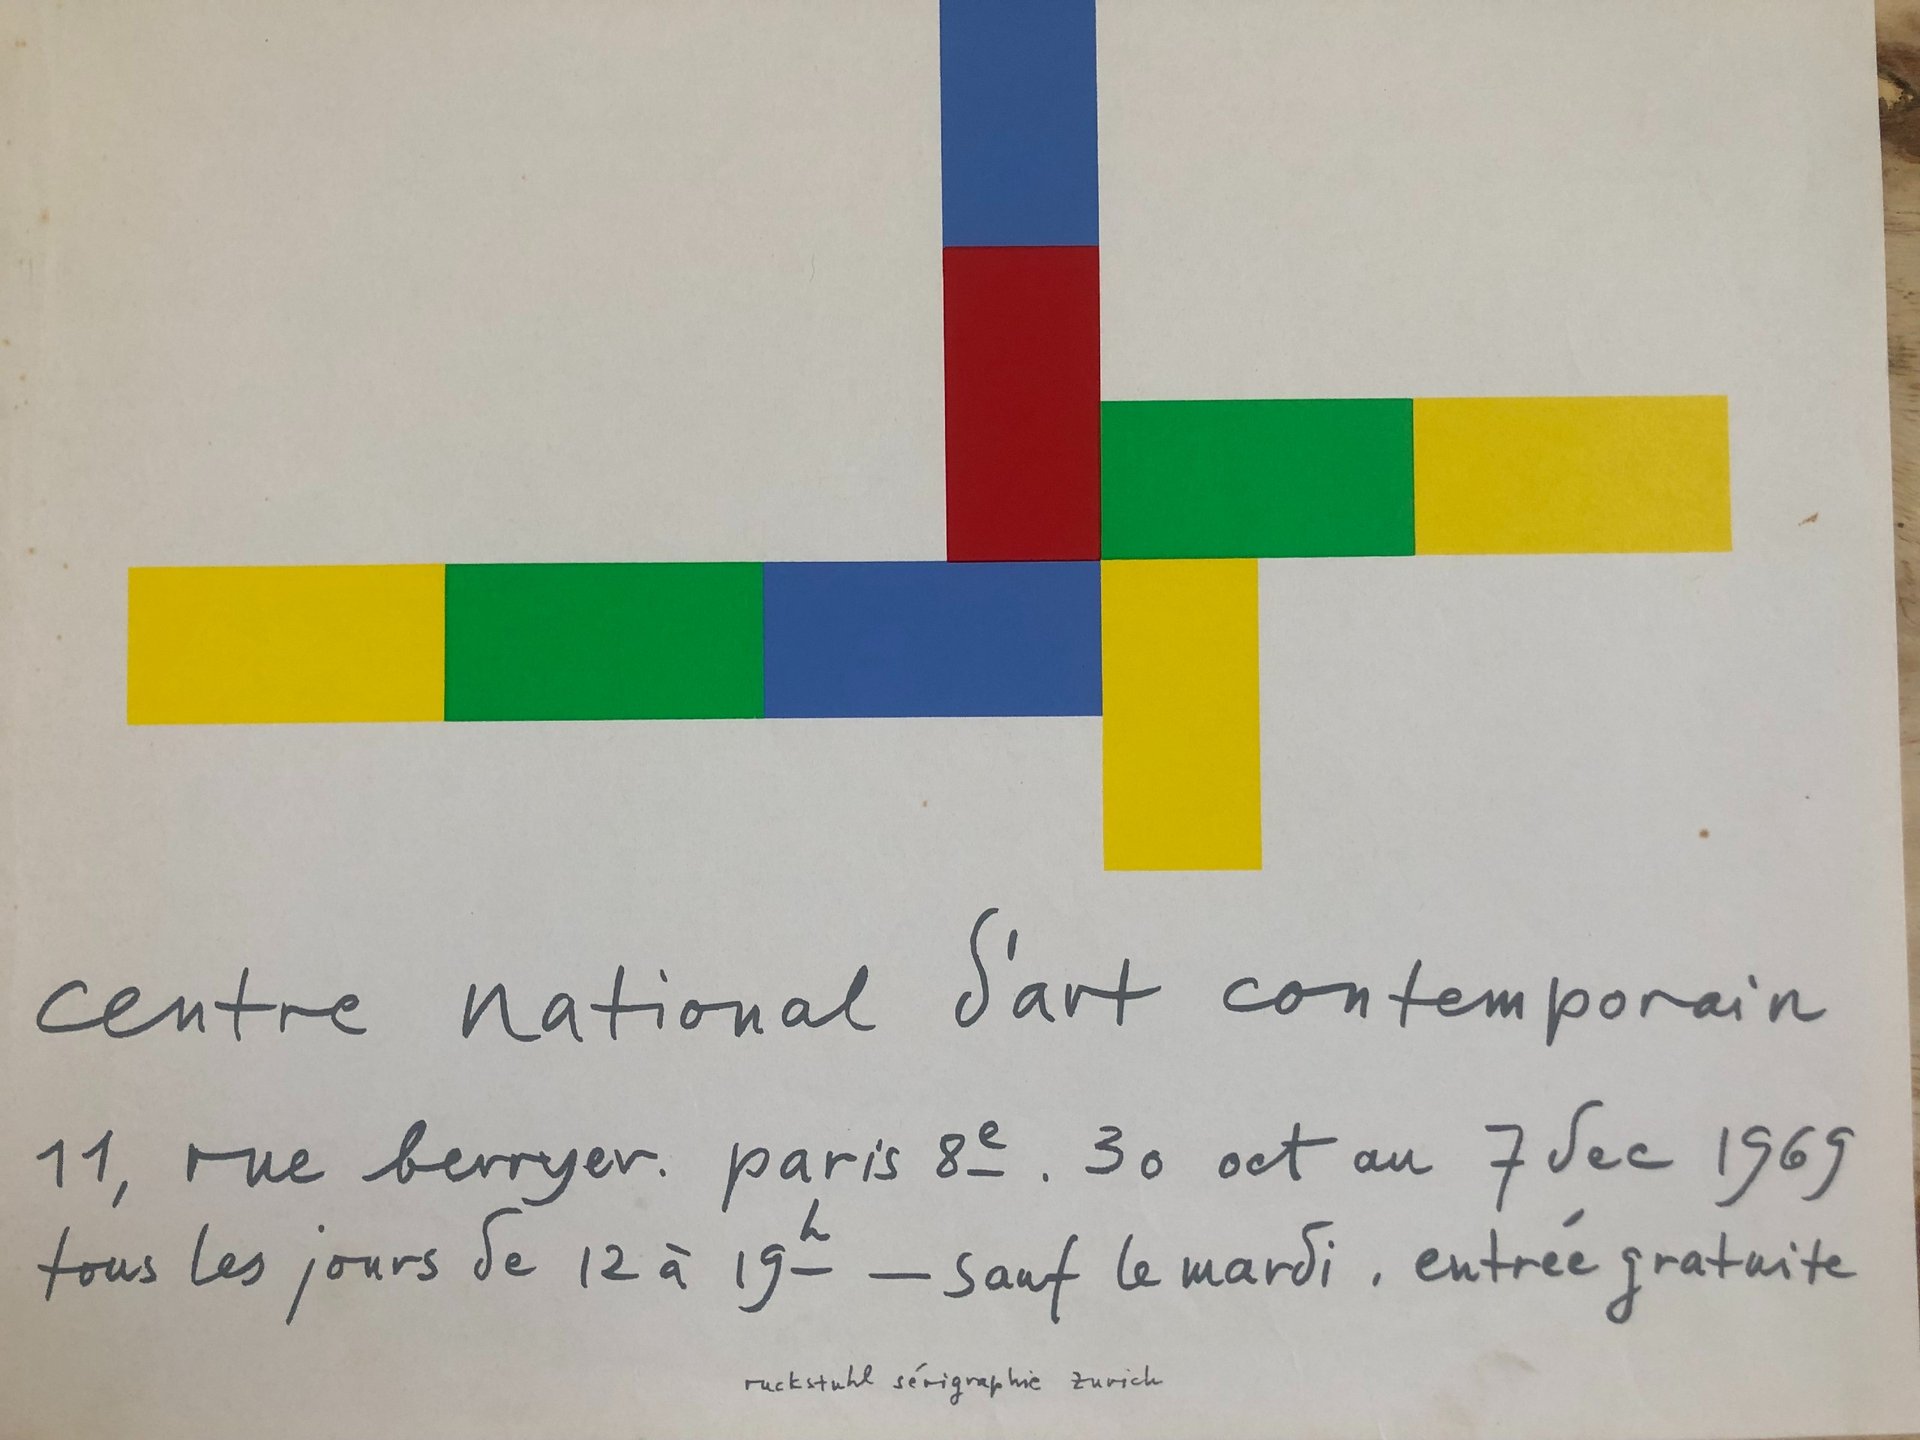 centre national d'art contemporain
11, rue berryer. paris 8e. 30 oct au 7 dec 1969
tous les jours de 12 à 19h — sauf le mardi. entrée gratuite
ruckstuhl sérigraphie zurich